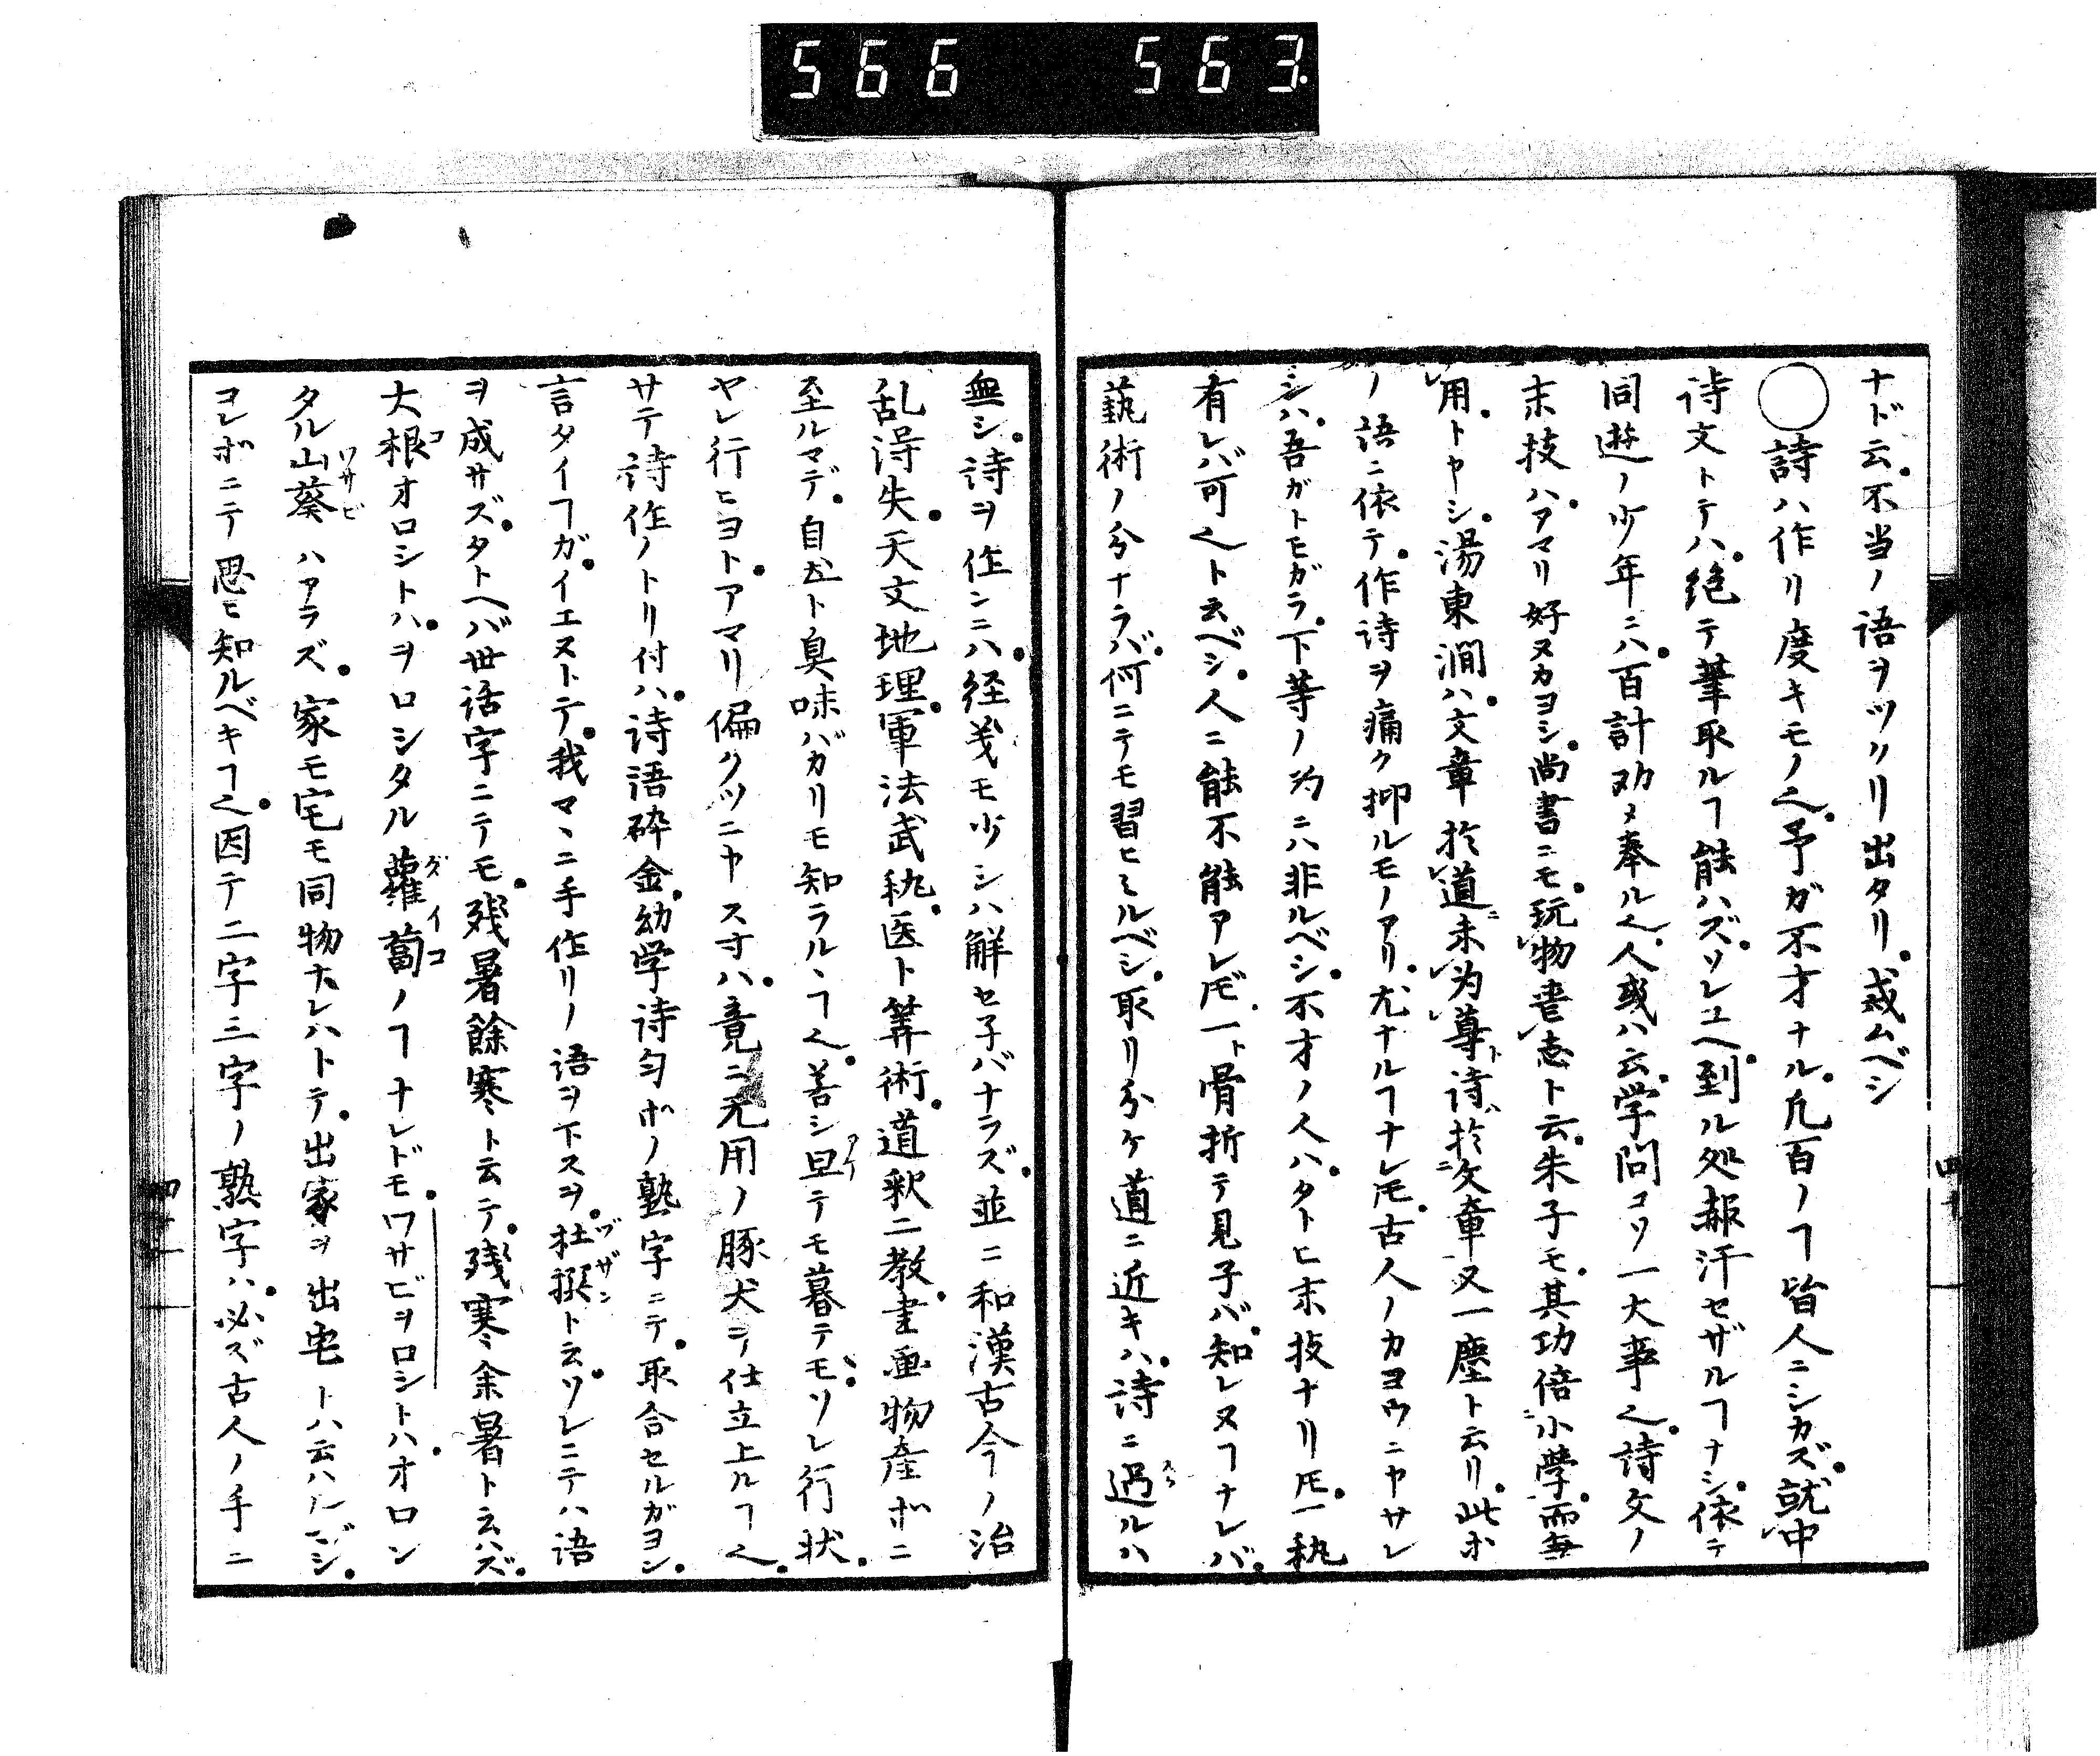 566 563.
ナド云。不当ノ語ヲツクリ出タリ。戒ムベシ
○詩ハ作リ度キモノ也。予ガ不才ナル。凡百ノヿ皆人ニシカズ。就中
詩文トテハ。絶テ筆取ルヿ能ハズ。ソレユヘ。到ル処赧汗セザルヿナシ。依テ
同遊ノ少年ニハ。百計劝メ奉ル也。人或ハ云。学問コソ一大事也。詩文ノ
末技ハ。アマリ好ヌカヨシ。尚書ニモ。玩物喪志ト云。朱子モ。其功倍小学。而無
用。トヤシ。湯東澗ハ。文章於道未为尊。詩於文章又一塵ト云リ。此ホ
ノ語ニ依テ。作詩ヲ痛ク抑ルモノアリ。尤ナルヿナレ𪜈。古人ノカヨウニヤサレ
シハ。吾ガトモガラ。下等ノ为ニハ非ルベシ。不才ノ人ハ。タトヒ末技ナリ𪜈。一執
有レバ可也ト云ベシ。人ニ能不能アレ𪜈。一ト骨折テ見子バ。知レヌヿナレバ。
藝術ノ分ナラバ。何ニテモ習ヒミルベシ。取リ分ケ道ニ近キハ。詩ニ過ルハ
無シ。詩ヲ作ンニハ。経義モ少シハ解セ子バナラズ。並ニ和漢古今ノ治
乱得失。天文地理。軍法武執。医ト筭術。道釈二教。書画物産ホニ
至ルマデ。自然ト臭味バカリモ知ラルヽヿ也。善シ旦テモ暮テモ。ソレ行状。
ヤレ行ヒヨト。アマリ偏クツニヤス寸ハ。竟ニ无用ノ豚犬ヲ仕立上ルヿ也。
サテ詩作ノトリ付ハ。詩語砕金。幼学詩匀ホノ熟字ニテ。取合セルガヨシ。
言タイヿガ。イエヌトテ。我マヽニ手作リノ語ヲ下スヲ。杜撰ト云。ソレニテハ語
ヲ成サズ。タトヘバ世話字ニテモ。残暑餘寒ト云テ。残寒余暑ト云ハズ。
大根オロシトハ。ヲロシタル蘿蔔ノヿナレドモ。ワサビヲロシトハ。オロシ
タル山葵ハアラズ。家モ宅モ同物ナレハトテ。出家ヲ出宅トハ云ハルマジ。
コレホニテ思ヒ知ルベキヿ也。因テ二字三字ノ熟字ハ。必ズ古人ノ手ニ